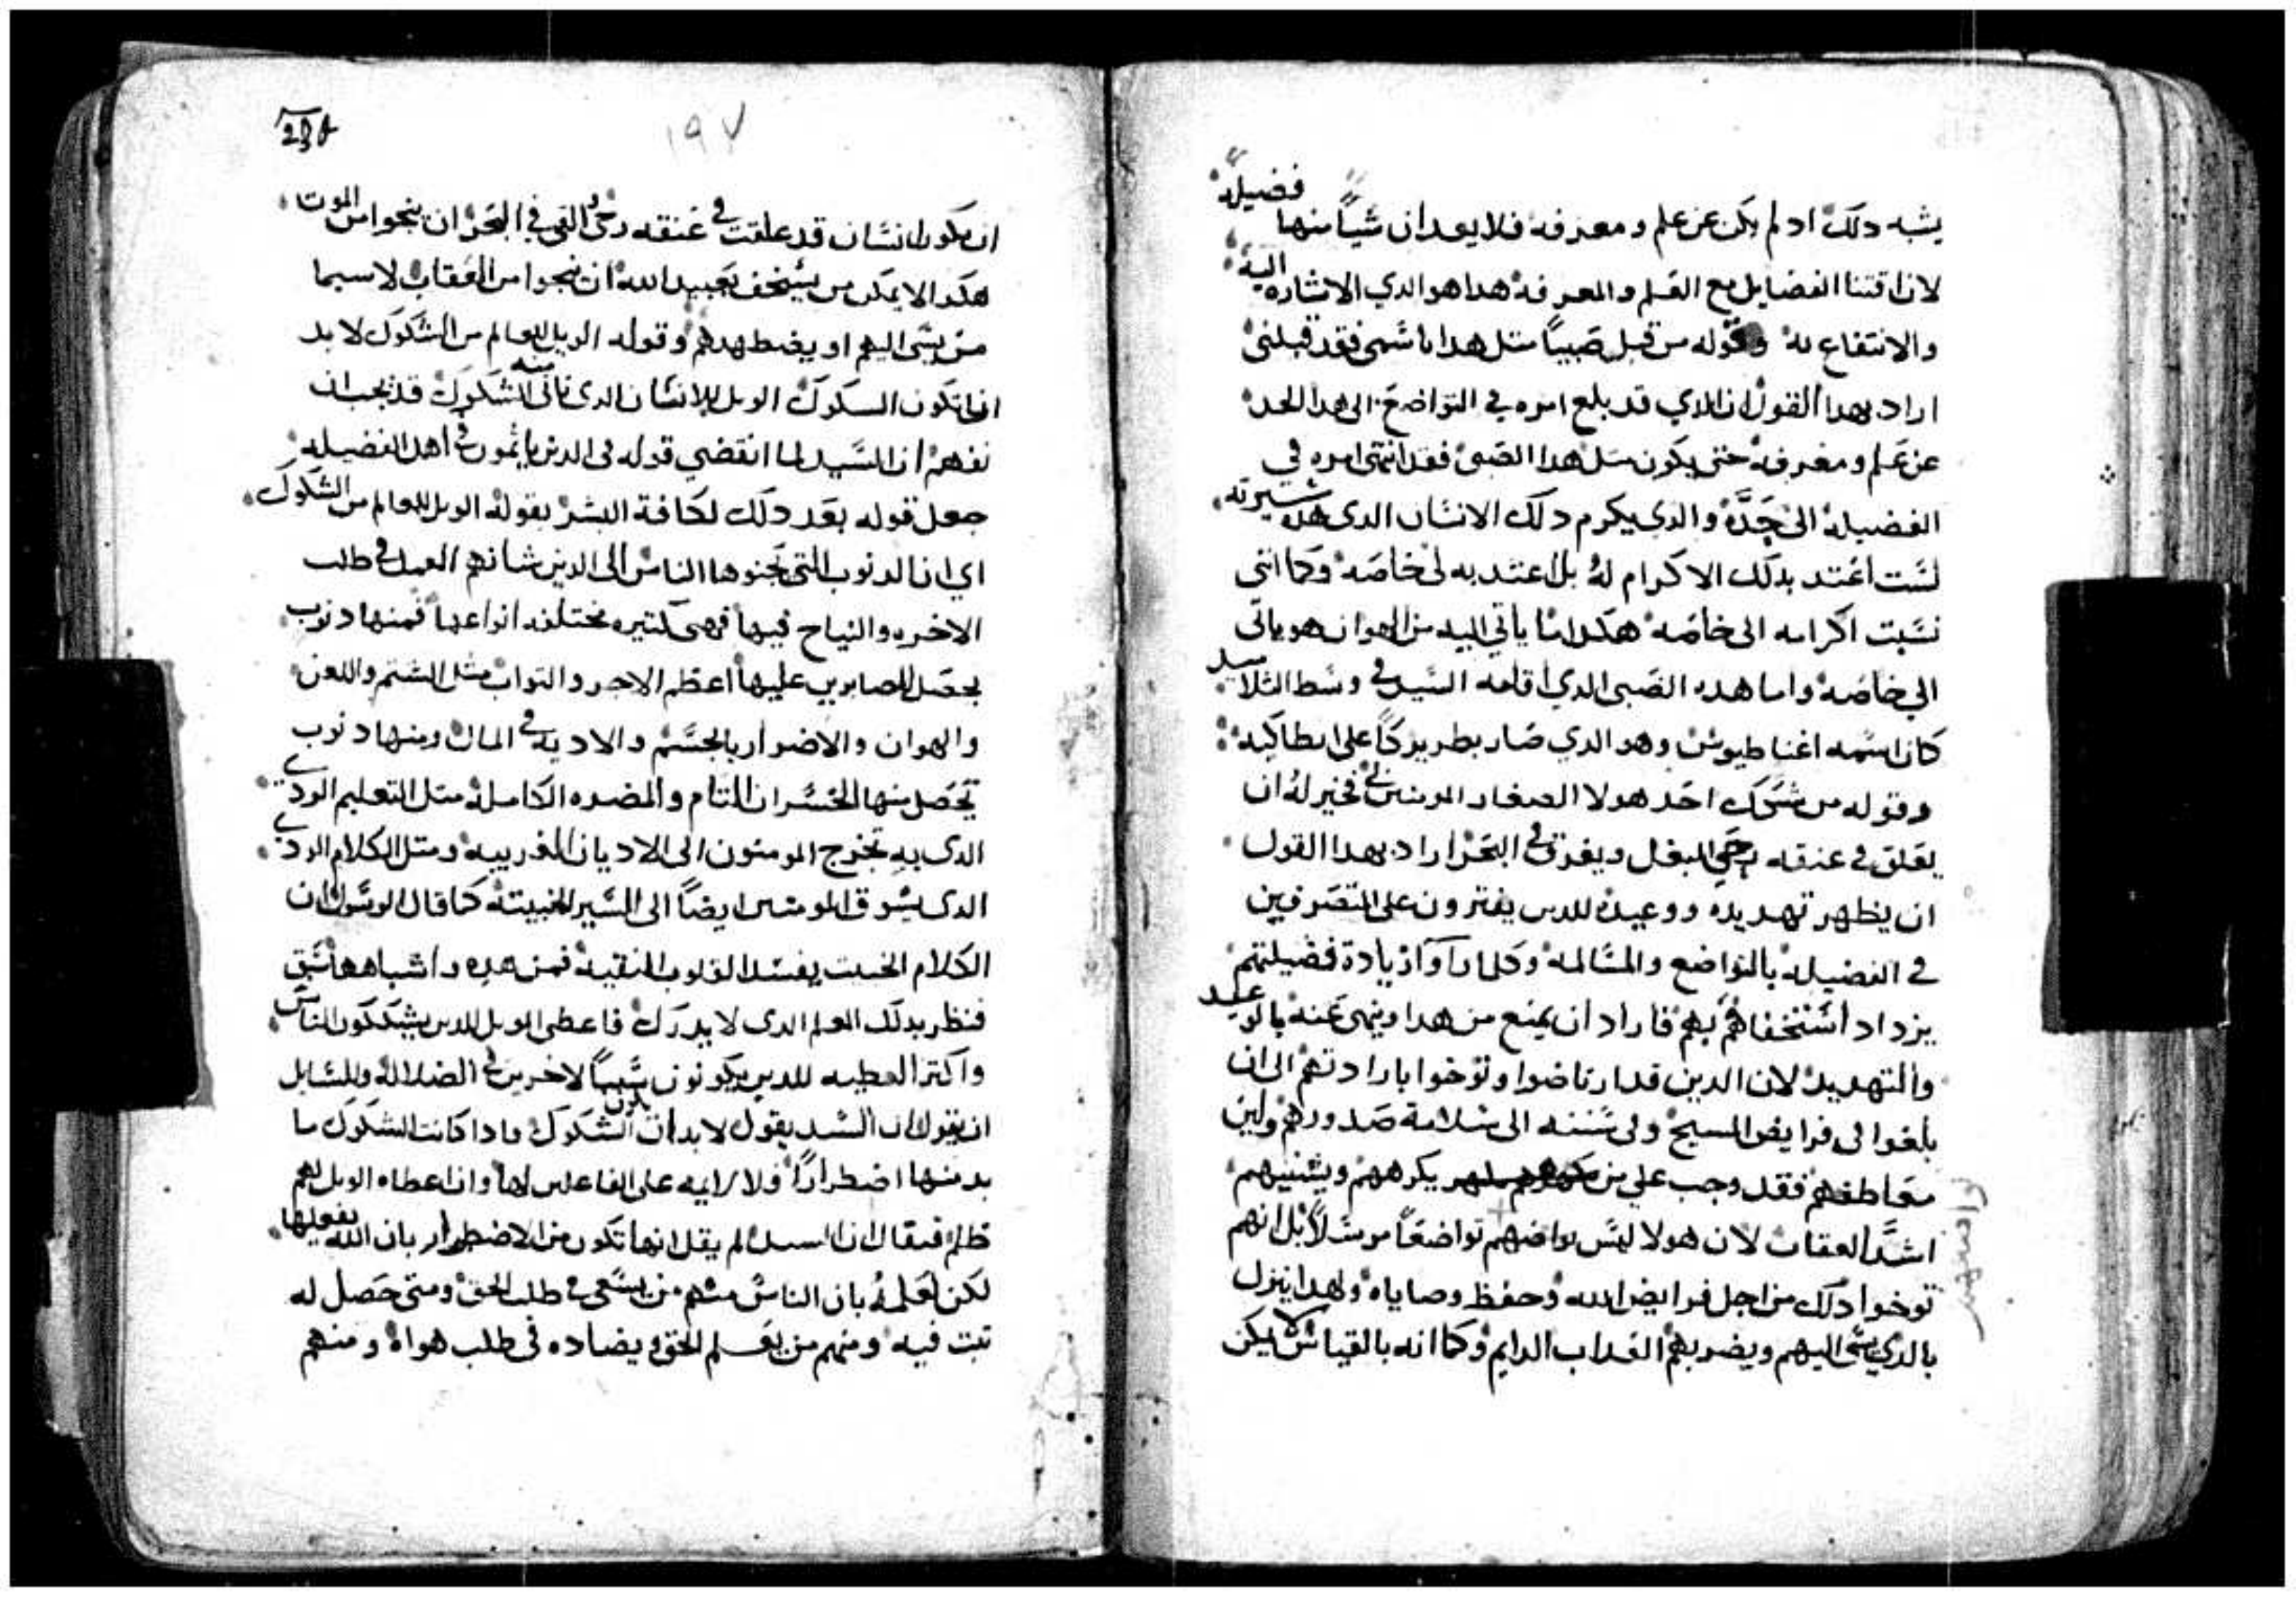 يشبه دلك اد لم يكن عن علم ومعرفه فلا يعدان شياً منها فضيله
لان اقتنا الفضايل مع العلم والمعرفه هدا هو الدي الاشاره اليه
والانتفاع به وقوله من قبل صبياً متل هدا باسمي فقد قبلني
اراد بهدا القول ان الدي قد بلع امره في التواضع الى هدا الحد
عن علم ومعرفه حتى يكون متل هدا الصبي فقد انتهى امره في
الفضيله الى حده والدي يكرم دلك الانسان الدي هده سيرته
لست اعتد بدلك الاكرام له بل اعتد به لى خاصه وكما انني
نسبت اكرامه الى خاصه هكدا ما ياتي اليه من الهوان هو ياتي
الي خاصه واما هده الصبي الدي اقامه السيد في وسط التلاميد
كان اسمه اغناطيوس وهو الدي صار بطريركاً على انطاكيه
وقوله من شكك احد هولا الصغار المومنين بي فخير له ان
يعلق في عنقه رحى البغل ويغرق في البحر اراد بهدا القول
ان يظهر تهديده ووعيده للدين يفترون على المتصرفين
في الفضيله بالتواضع والمسالمه وكلما زادو ازيادة فضيلتهم
يزداد استخفافهم بهم فاراد ان يمنع من هدا وينهى عنه بالوعيد
والتهديد لان الدين قد ارتاضوا وتوخوا بارادتهم الى ان
بلغوا في فرايض المسيح وفي سننه الى سلامة صدورهم ولين
معاطفهم فقد وجب على من يكرههم ويشنيهم
اشد العقاب لان هولا ليس تواضعهم تواضعاً مرسلاً بل انهم
توخوا دلك من اجل فرايض الله وحفظ وصاياه ولهدا ينزل
بالدي يسى اليهم ويضر بهم العداب الدايم وكما انه بالقياس لا يمكن
١٩٧
ان يكون انسان قد علقت في عنقه رحى والقي في البحر ان ينجوا من الموت
هكدا لا يمكن من يستخف بعبيد الله ان ينجوا من العقاب لاسيما
من يسى اليهم او يضطهدهم وقوله الويل للعالم من الشكوك لا بد
ان تكون السكوك الويل للانسان الدى تاتى منه الشكوك قد يجب ان
نفهم ان السيد لما انقضي قوله فى الدين ياتمون في اهل الفضيله
جعل قوله بعد دلك لكافة البشر بقوله الويل للعالم من الشكوك
اي ان الدنوب التى يجنوها الناس الى الدين شانهم العمل في طلب
الاخره والنياح فيها فهى كتيره مختلفه انواعها فمنها دنوب
يحصل للصابرين عليها اعظم الاجر والتواب متل الشتم واللعن
والهوان والاضرار بالجسم والاديه في المال ومنها دنوب
تحصل منها الخسران التام والمضره الكامله متل التعليم الردي
الدى به تخرج المومنون الى الاديان الغريبه ومتل الكلام الردي
الدى يسوق المومنين ايضاً الى السير الخبيته كما قال الرسول ان
الكلام الخبيت يفسد القلوب النقيه فمن هده واشباهها سبق
فنظر بدلك العلم الدى لا يدرك فاعطى الويل للدين يشككون الناس
واكتر العطيه للدين يكونون سبباً لاخرين في الضلاله وللسايل
ان يقول ان السيد يقول لا بد ان تكون الشكوك وادا كانت الشكوك ما
بد منها اضطراراً فلا لايمه على الفاعلين لها وان اعطاه الويل لهم
ظلم فيقال ان السيد لم يقل انها تكون من الاضطرار بان الله يفعلها
لكن لعلمه بان الناس منهم من يسعى في طلب الحق ومتى حصل له
تبت فيه ومنهم من يعلم الحق ويضاده في طلب هواه ومنهم